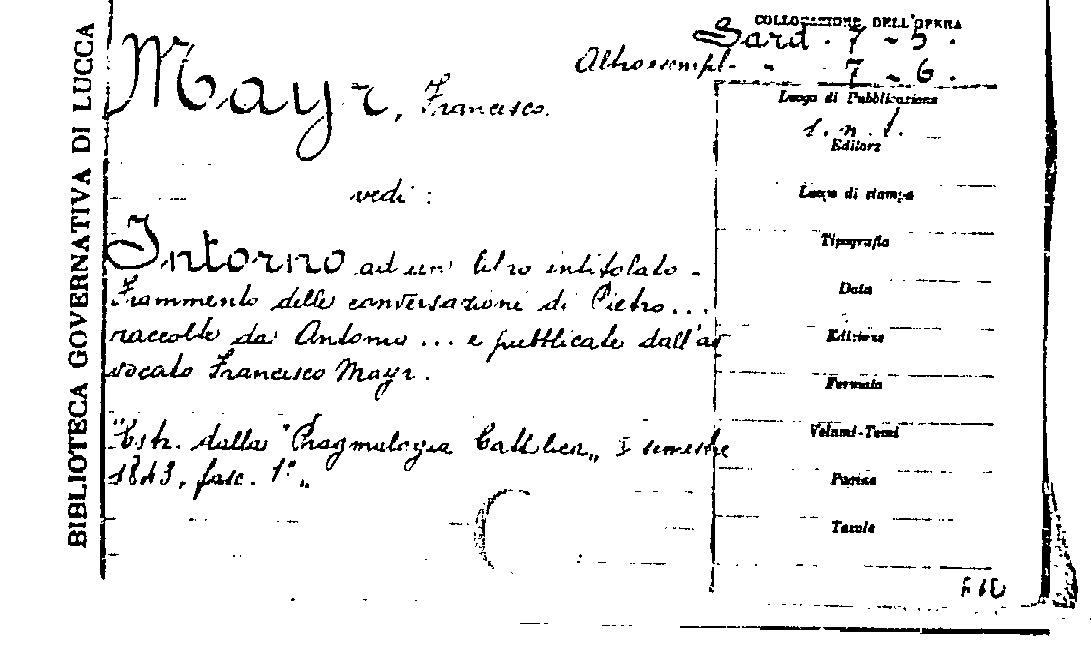 BIBLIOTECA GOVERNATIVA DI LUCCA
COLLOCAZIONE DELL'OPERA
Sard. 7 - 5.
Altro esempl. - - 7 - 6.
Mayr, Francisco.
vedi :
Intorno ad un libro intitolato -
Frammento delle conversazioni di Pietro...
raccolte da Antonio ... e pubblicate dall'av
vocato Francisco Mayr.
"Estr. dalla "Pragmalogia Cattolica„ I semestre
1843, fasc. 1°„
Luogo di Pubblicazione
s. n. l.
Editore
Luogo di stampa
Tipografia
Data
Edizione
Formato
Volumi-Tomi
Pagine
Tavole